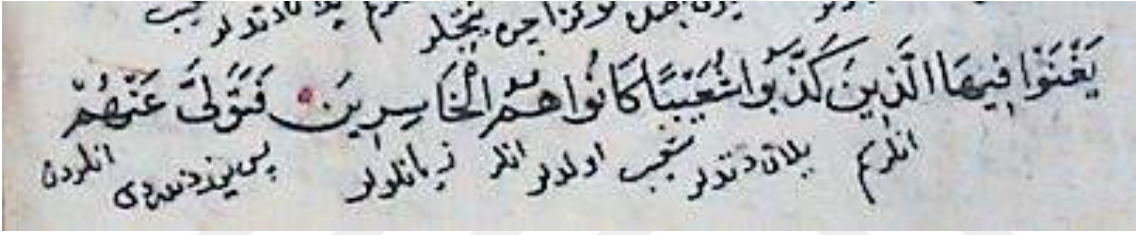 يَغْنَوْا فِيهَا الَّذِينَ كَذَّبُوا شُعَيْبًا كَانُوا هُمُ الْخَاسِرِينَ فَتَوَلَّى عَنْهُمْ
انلركم يلان دتدلر شعيب اولدلر انلر زيانلولر پس يوز دندردى انلردن